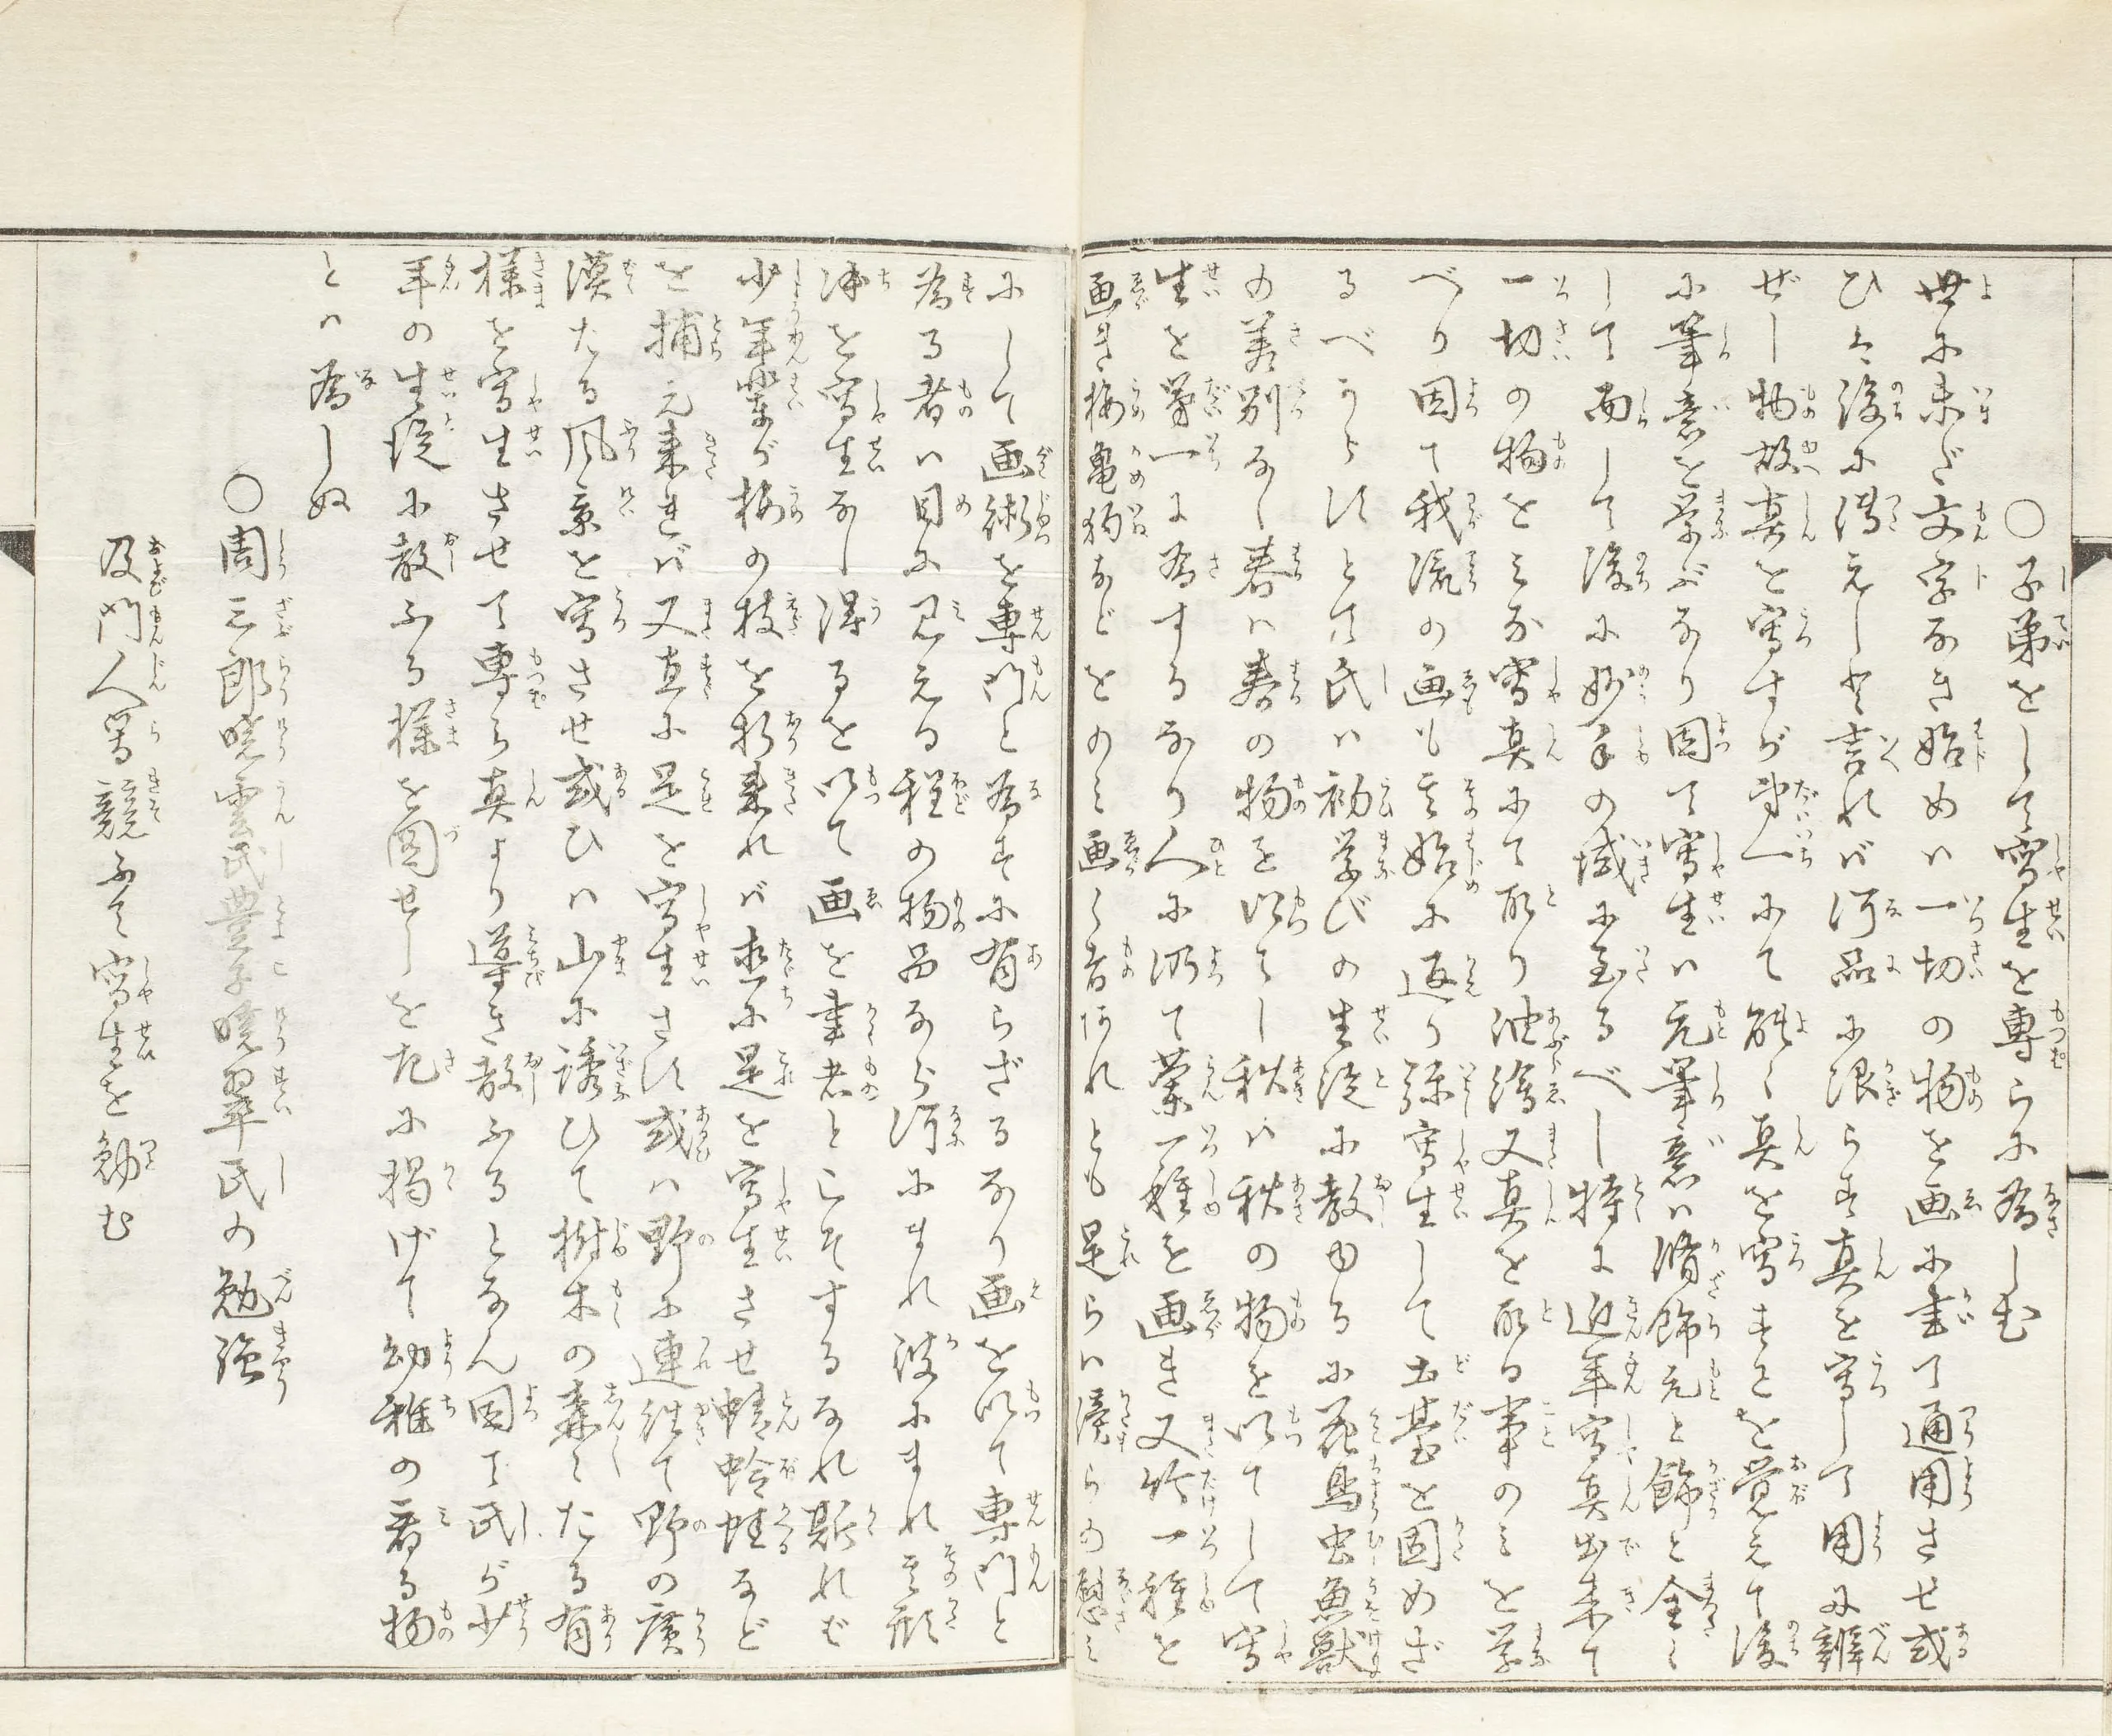 ○子弟をして寫生を専らに為しむ
世に未だ文字なき始めハ一切の物を画に書て通用させ或
ひハ後に満えしと言れバ何品に限らず真を寫して用を辨
ぜし物故真を寫すが第一にて能く真を寫すとを覚えて後
に筆意を学ぶなり因て寫生ハ元筆意ハ脩飾元と飾と全く
して而して後に妙手の域に至るべし特に近年寫真出来て
一切の物をミな寫真にて取り油濳又真を取る事のミを学
べり因て我流の画も其始に返り弥寫生して土䑓を固めざ
るべからずとて氏ハ初学びの生徒に教ゆるに花鳥虫魚獣
の差別なし春ハ春の物を以てし秋ハ秋の物を以てして寫
生を第一に為するなり人に仍て蘭一種を画き又竹一種を
画き梅亀狗などをのミ画く者あれとも是らハ僕らの慰ミ
にして画術を専門と為すに有らざるなり画を以て専門と
為る者ハ目に見える程の物品なら何にまれ彼にまれ其形
体を寫生なし得るを以て画を書者とこそするなれ斯れば
少年輩が梅の枝を折来れバ直に是を寫生させ蜻蛉蛙など
を捕え来れバ又直に是を寫生さす或ハ野に連往て野の廣
漠たる風景を寫させ或ひハ山に誘ひて樹木の森々たる有
様を寫生させて専ら真より導き教ふるとなん因て氏が少
年の生徒に教ふる様を図せしを左に掲げて幼稚の看る物
とハ為しぬ
○周三郎暁雲氏豊子暁翠氏の勉強
及門人等競ふて寫生を勉む